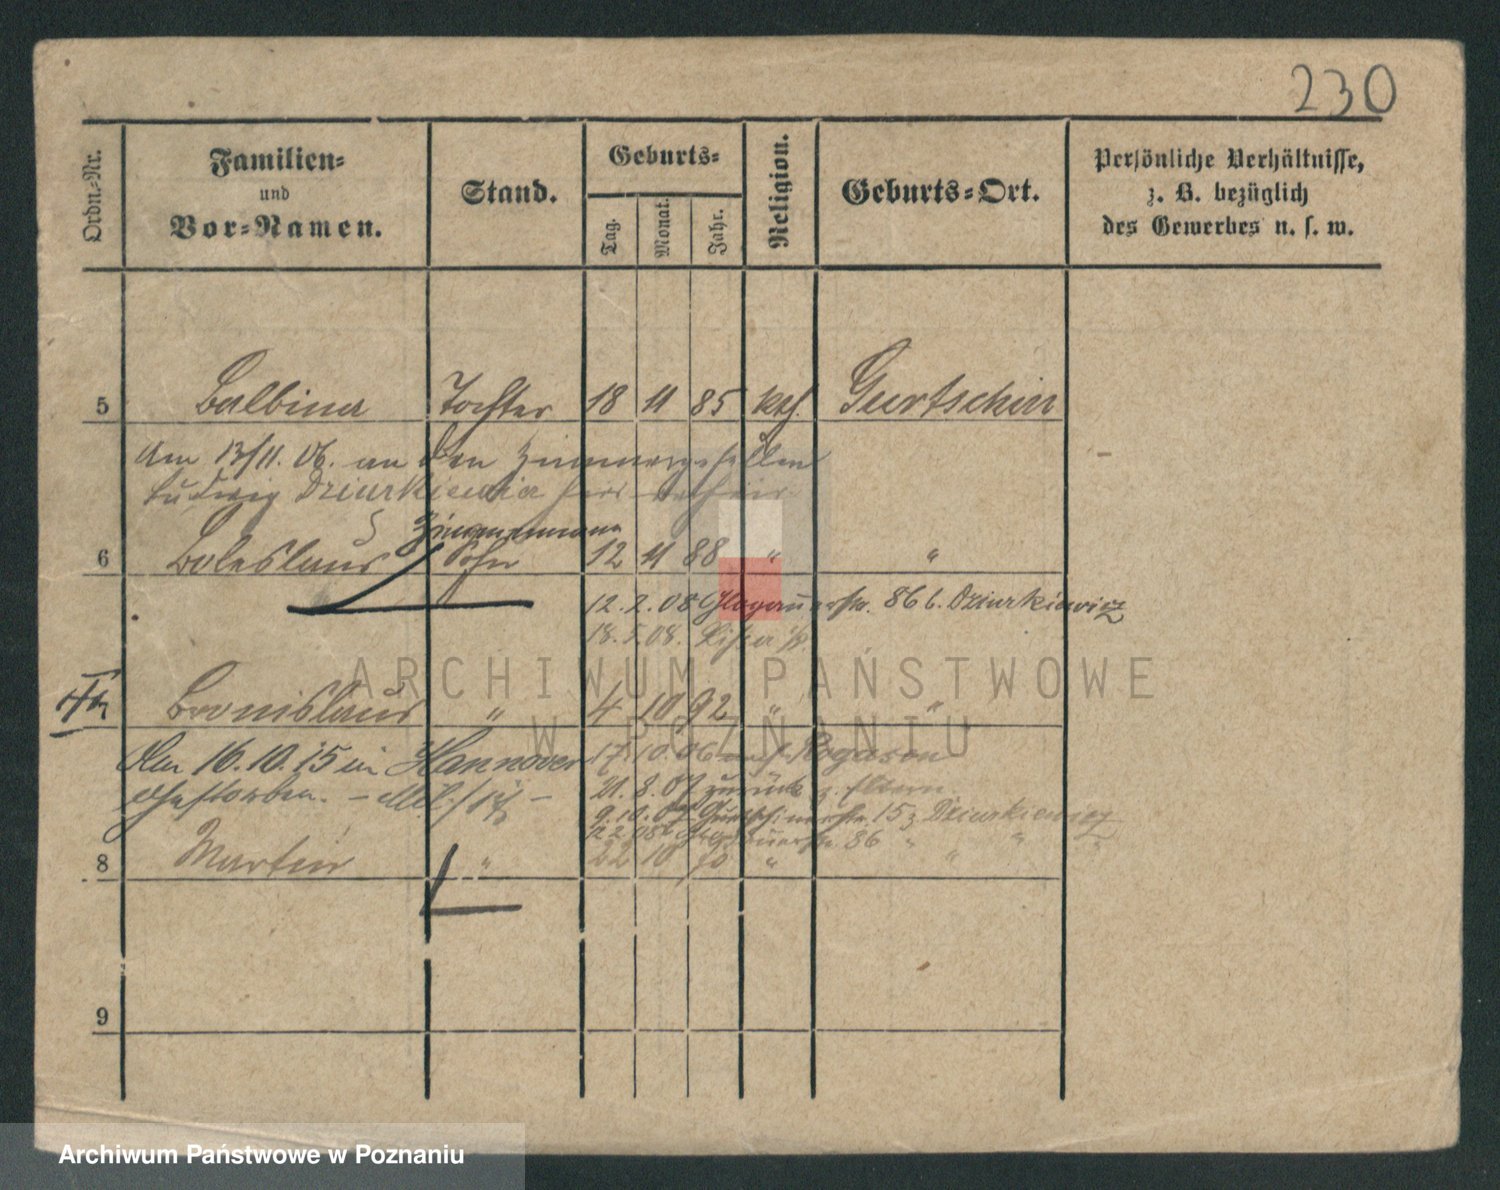 230
Ordn.-Nr.
Familien- und Vor-Namen.
Stand.
Geburts-
Tag.
Monat.
Jahr.
Religion.
Geburts-Ort.
Persönliche Verhältnisse,
z. B. bezüglich
des Gewerbes u. s. w.
5 Balbina Tochter 18 11 85 kth. Gurtschin
Am 13/11. 06. an den Zimmergesellen
Ludwig Dziurkiewicz
Zimmermann
6 Boleslaus Sohn 12 11 88 " "
12. 2. 08 Glogauerstr. 86 b. Dziurkiewicz
18. 5. 08.
Bronislaus " 4 10 92 " "
Am 16. 10. 15 in Hannover 17. 10. 06 Rogasen
21. 8. 07 zurück z. Eltern
9. 10. 07 Gurtschinerstr. 15 Dziurkiewicz
12 2 08 Glogauerstr. 86 " " "
8 Martin " 22 10 " "
9
ARCHIWUM PAŃSTWOWE
W POZNANIU
Archiwum Państwowe w Poznaniu